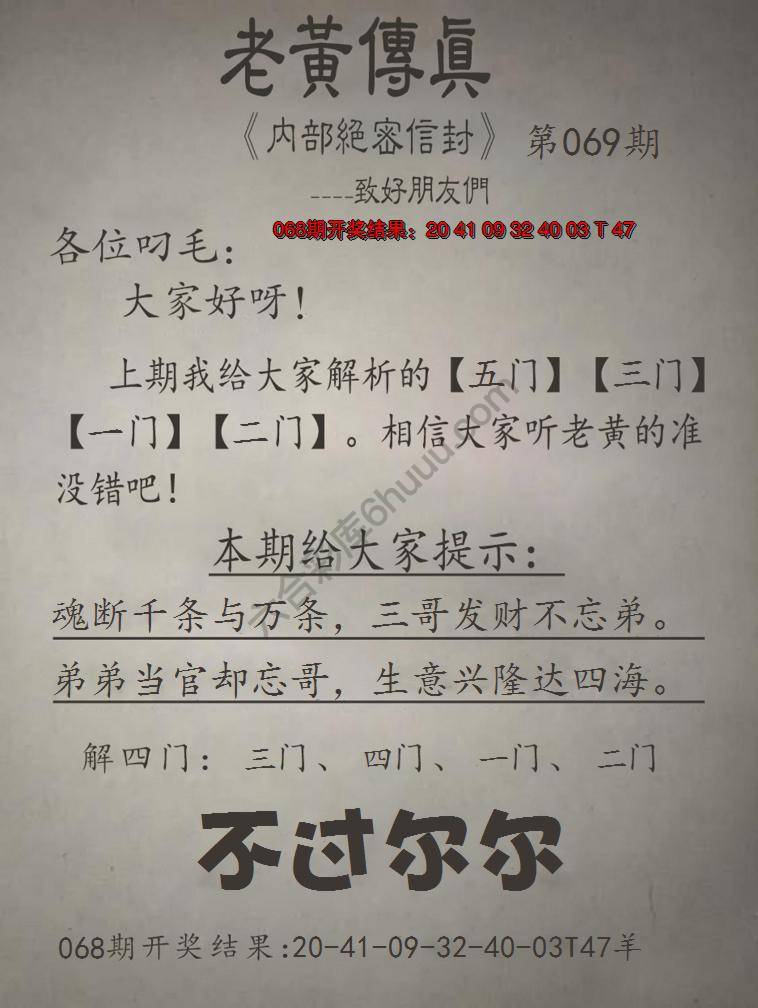 老黃傳真
《内部絕密信封》 第069期
----致好朋友們
068期开奖结果：20 41 09 32 40 03 T 47
各位叼毛：
大家好呀！
上期我给大家解析的【五门】【三门】
【一门】【二门】。相信大家听老黄的准
没错吧！
本期给大家提示：
魂断千条与万条，三哥发财不忘弟。
弟弟当官却忘哥，生意兴隆达四海。
解四门： 三门、 四门、 一门、 二门
不过尔尔
068期开奖结果:20-41-09-32-40-03T47羊
六合彩库6huuu.com